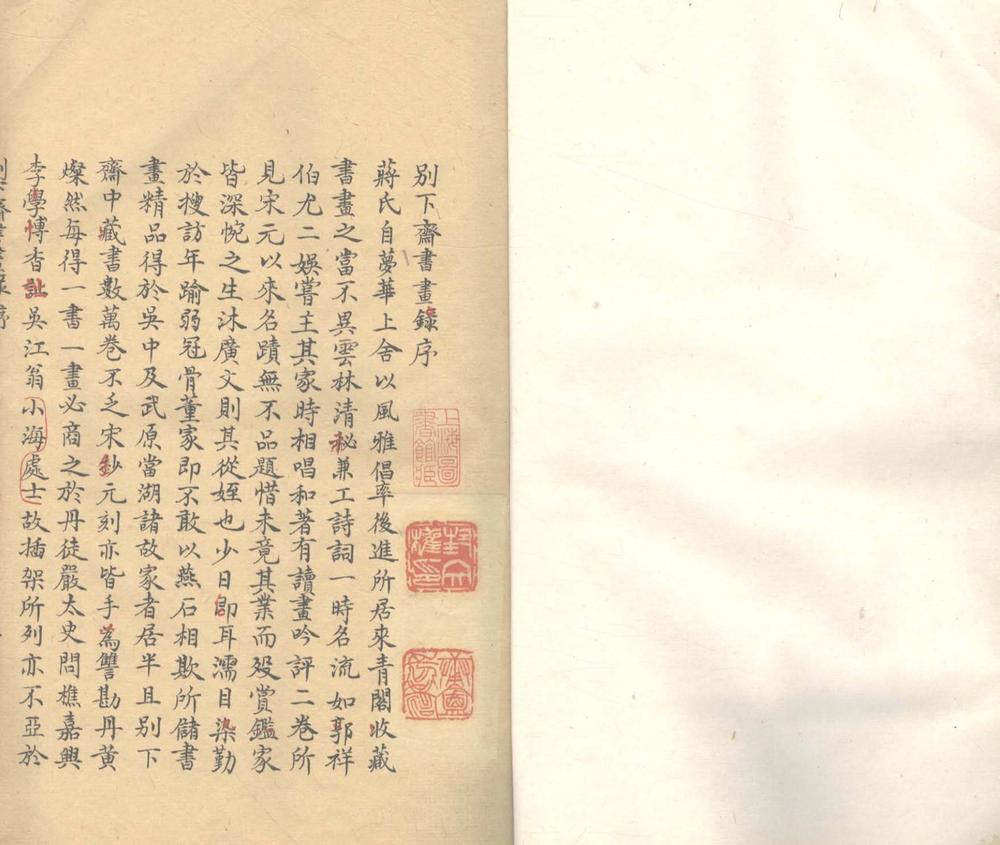 別下齋書畫錄序
蔣氏自夢華上舍以風雅倡率後進所居來青閣收藏
書畫之富不異雲林清秘兼工詩詞一時名流如郭祥
伯尤二娛嘗主其家時相唱和著有讀畫吟評二卷所
見宋元以來名蹟無不品題惜未竟其業而歿賞鑑家
皆深惋之生沐廣文則其從姪也少日即耳濡目染勤
於搜訪年踰弱冠骨董家即不敢以燕石相欺所儲書
畫精品得於吳中及武原當湖諸故家者居半且別下
齋中藏書數萬卷不乏宋鈔元刻亦皆手為讐勘丹黃
燦然每得一書一畫必商之於丹徒嚴太史問樵嘉興
李學博杳訨吳江翁小海處士故插架所列亦不亞於
上海圖書館臧